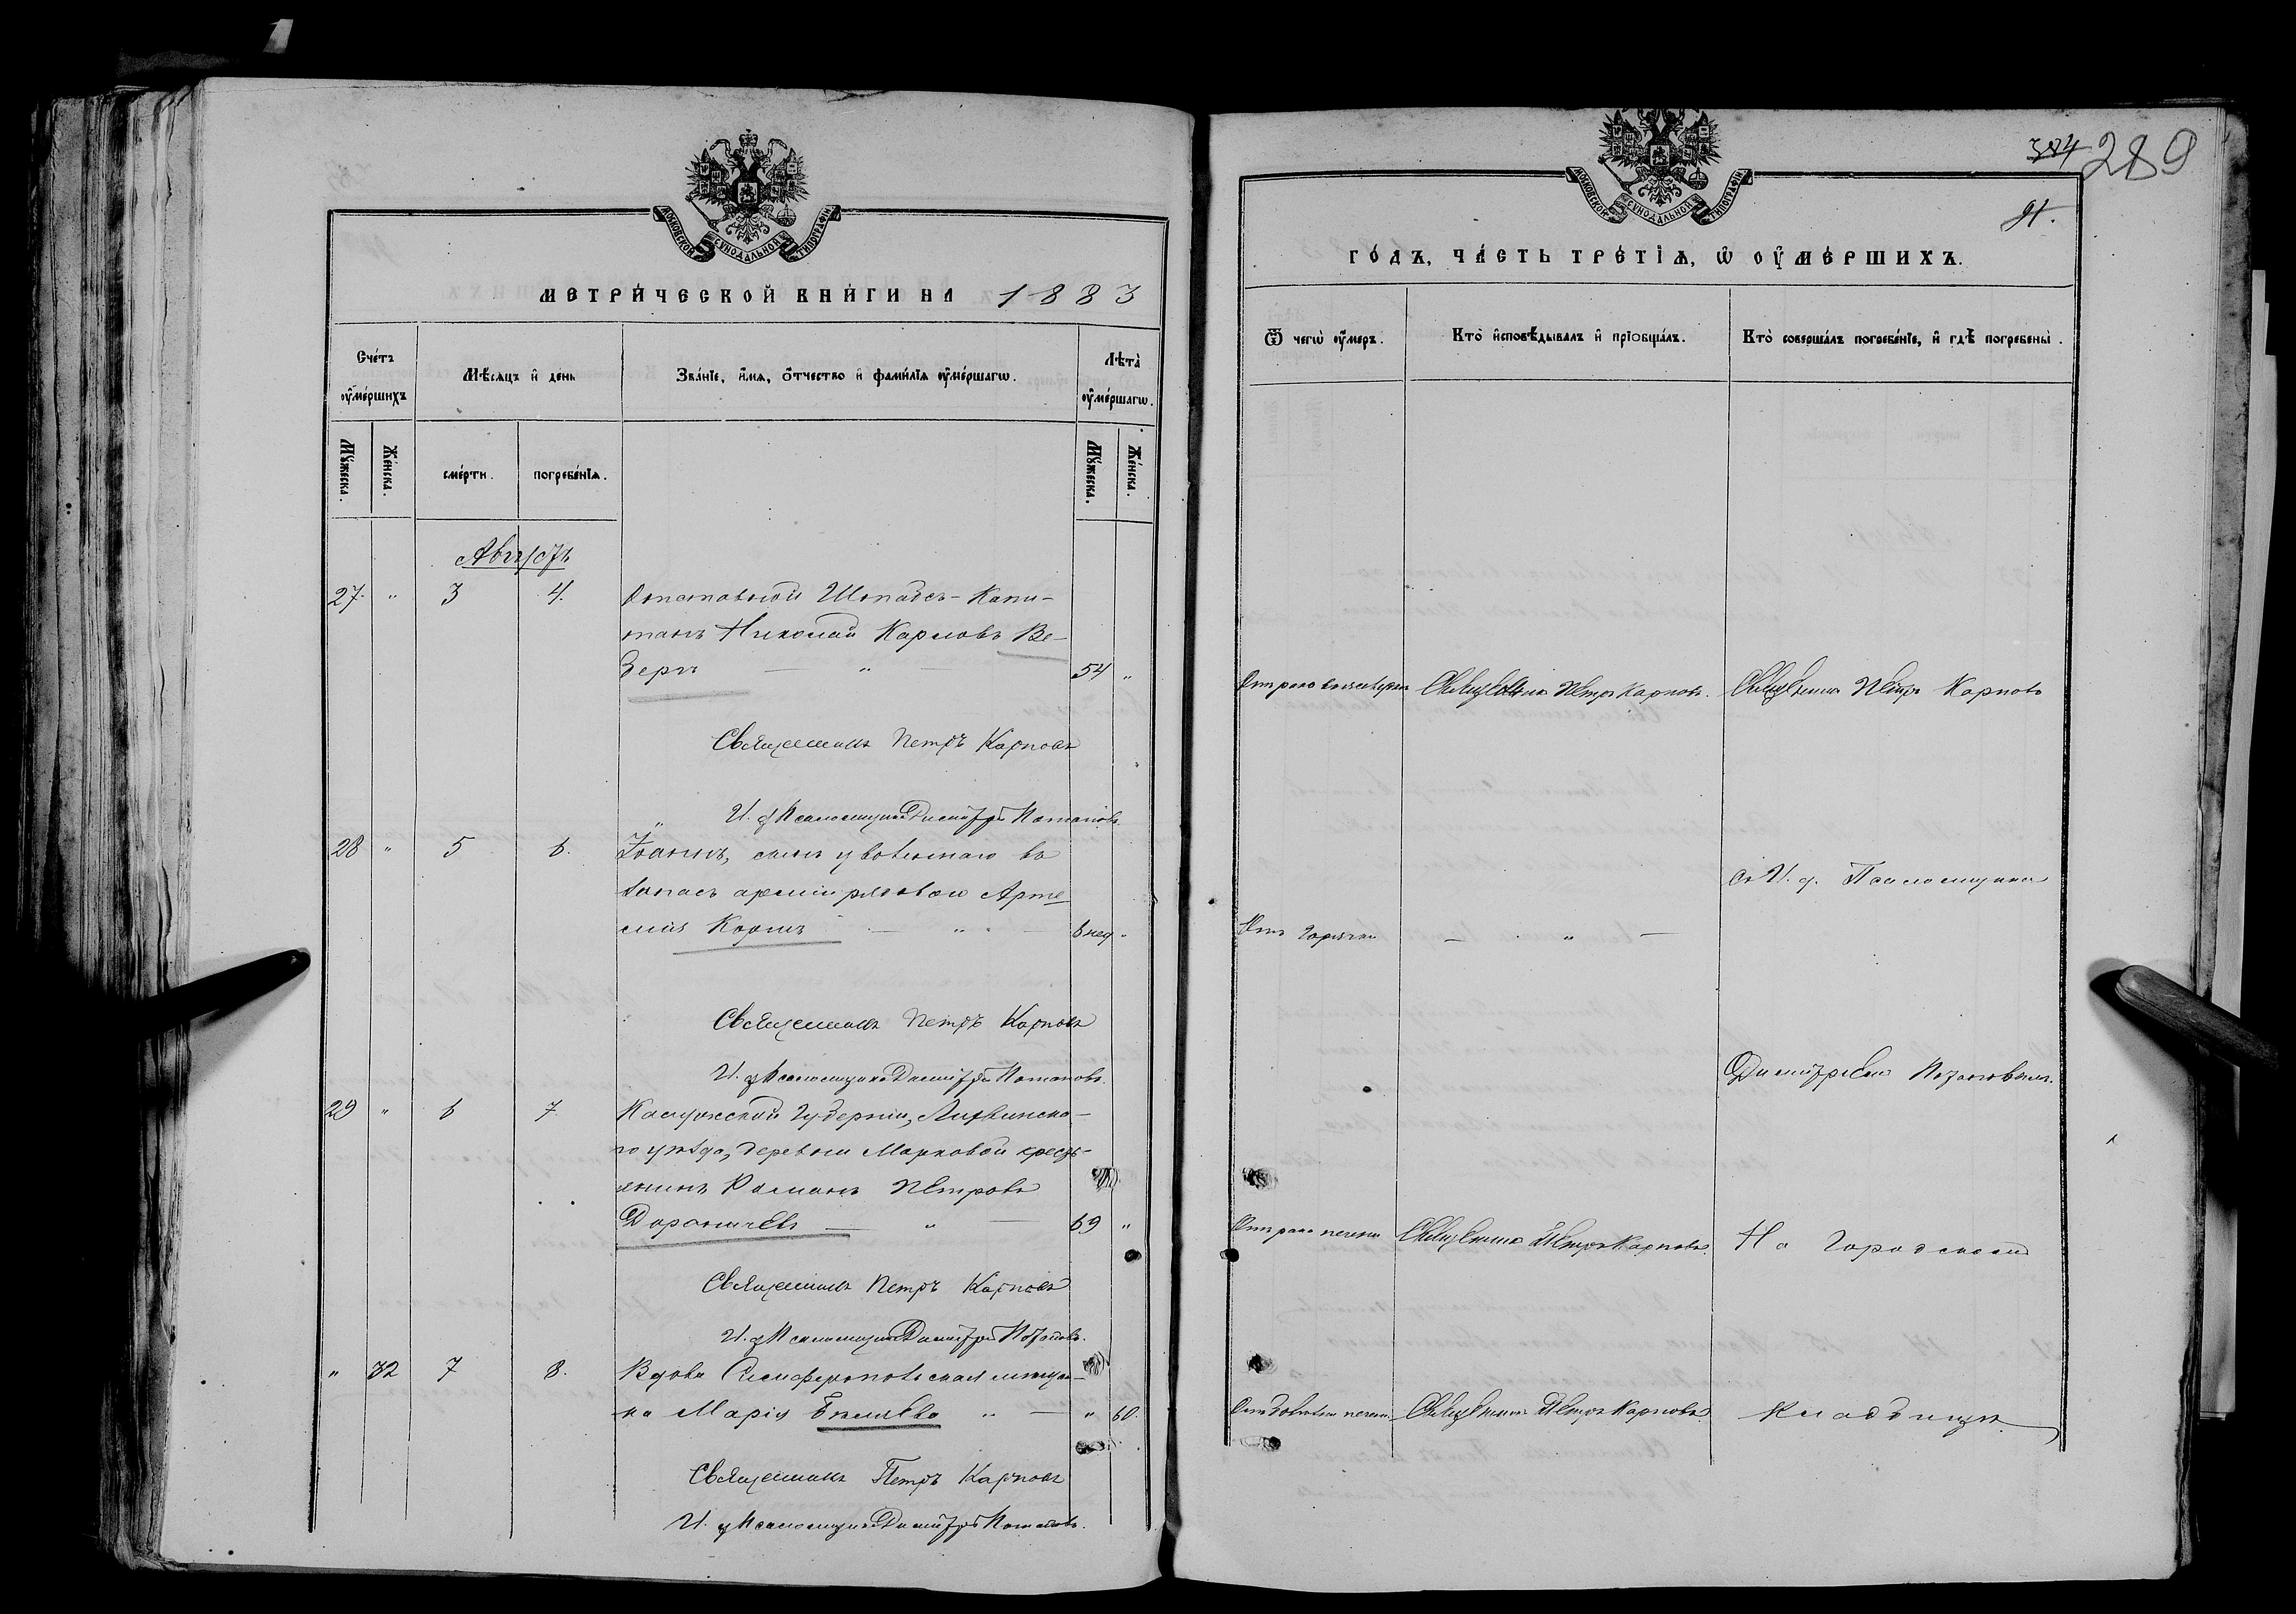 МОСКОВСКОЙ СѴНОДАЛЬНОЙ ТИПОГРАФІИ
МЕТРИ́ЧЕСКОЙ КНИ́ГИ НА 1883
Сче́тъ оу҆ме́ршихъ
Мѣ́сяцъ и҆ день
Зва́нїе, и҆́мѧ, о҆́тчество и҆ фами́лїѧ оу҆ме́ршагѡ.
Лѣта̀ оу҆ме́ршагѡ.
Мꙋ́жеска.
Же́нска.
сме́рти.
погребе́нїѧ.
Мꙋ́жеска.
Же́нска.
Августъ
27. " 3 4. Отставной Штабсъ-Капи-
танъ Николай Карловъ Ве-
беръ — " — 54 "
Священникъ Петръ Карповъ
И. д. Псаломщика Димитрій Потаповъ.
28 " 5 6. Іоаннъ, сынъ уволеннаго въ
запасъ арміи рядоваго Арте-
мія — " — 6 нед "
Священникъ Петръ Карповъ
И. д. Псаломщика Димитрій Потаповъ.
29 " 6 7. Калужской Губерніи, Лихвинска-
го уѣзда, деревни Марковой кресть-
янинъ Романъ Петровъ
— " — 69 "
Священникъ Петръ Карповъ
И. д. Псаломщика Димитрій Потаповъ.
" 32 7 8. Вдова Симферопольская мѣщан-
ка Марія Бѣляева " — " 60.
Священникъ Петръ Карповъ
И. д. Псаломщика Димитрій Потаповъ.
384 289
91.
МОСКОВСКОЙ СѴНОДАЛЬНОЙ ТИПОГРАФІИ
ГО́ДЪ, ЧА́СТЬ ТРЕ́ТІѦ, Ѡ ОУ҆МЕ́РШИХЪ.
Ѿ чегѡ̀ оу҆́меръ.
Кто̀ и҆сповѣ́дывалъ и҆ прїобща́лъ.
Кто̀ соверша́лъ погребе́нїе, и҆ гдѣ̀ погребены̀.
Отъ рака Священникъ Петръ Карповъ. Священникъ Петръ Карповъ
Съ И. д. Псаломщика
Отъ горячки — " —
Димитріемъ Потаповымъ.
Отъ рака печени Священникъ Петръ Карповъ. На Городскомъ
печени Священникъ Петръ Карповъ Кладбищѣ.